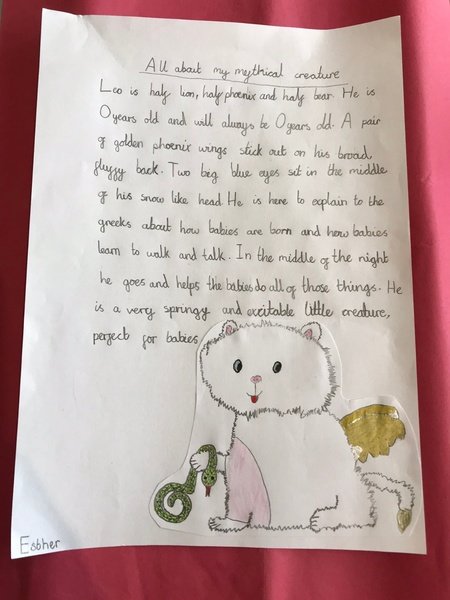 All about my mythical creature
Leo is half lion, half phoenix and half bear. He is
0 years old and will always be 0 years old. A pair
of golden phoenix wings stick out on his broad,
fluffy back. Two big blue eyes sit in the middle
of his snow like head. He is here to explain to the
greeks about how babies are born and how babies
learn to walk and talk. In the middle of the night
he goes and helps the babies do all of those things. He
is a very springy and excitable little creature,
perfect for babies
Esther